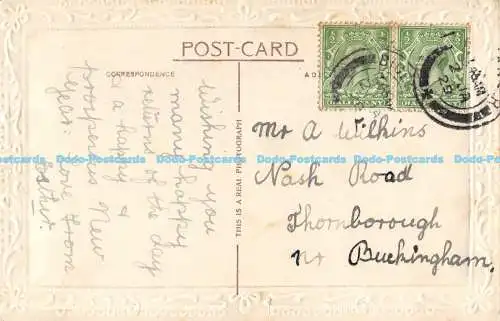 POST-CARD
CORRESPONDENCE
THIS IS A REAL PHOTOGRAPH
Wishing you
many happy
returns of the day
& a happy &
prosperous New
Year.
Love from
Mr A Wilkins
Nash Road
Thornborough
nr Buckingham.
HALFPENNY
HALFPENNY
Dodo-Postcards Dodo-Postcards Dodo-Postcards Dodo-Postcards Dodo-Postcards